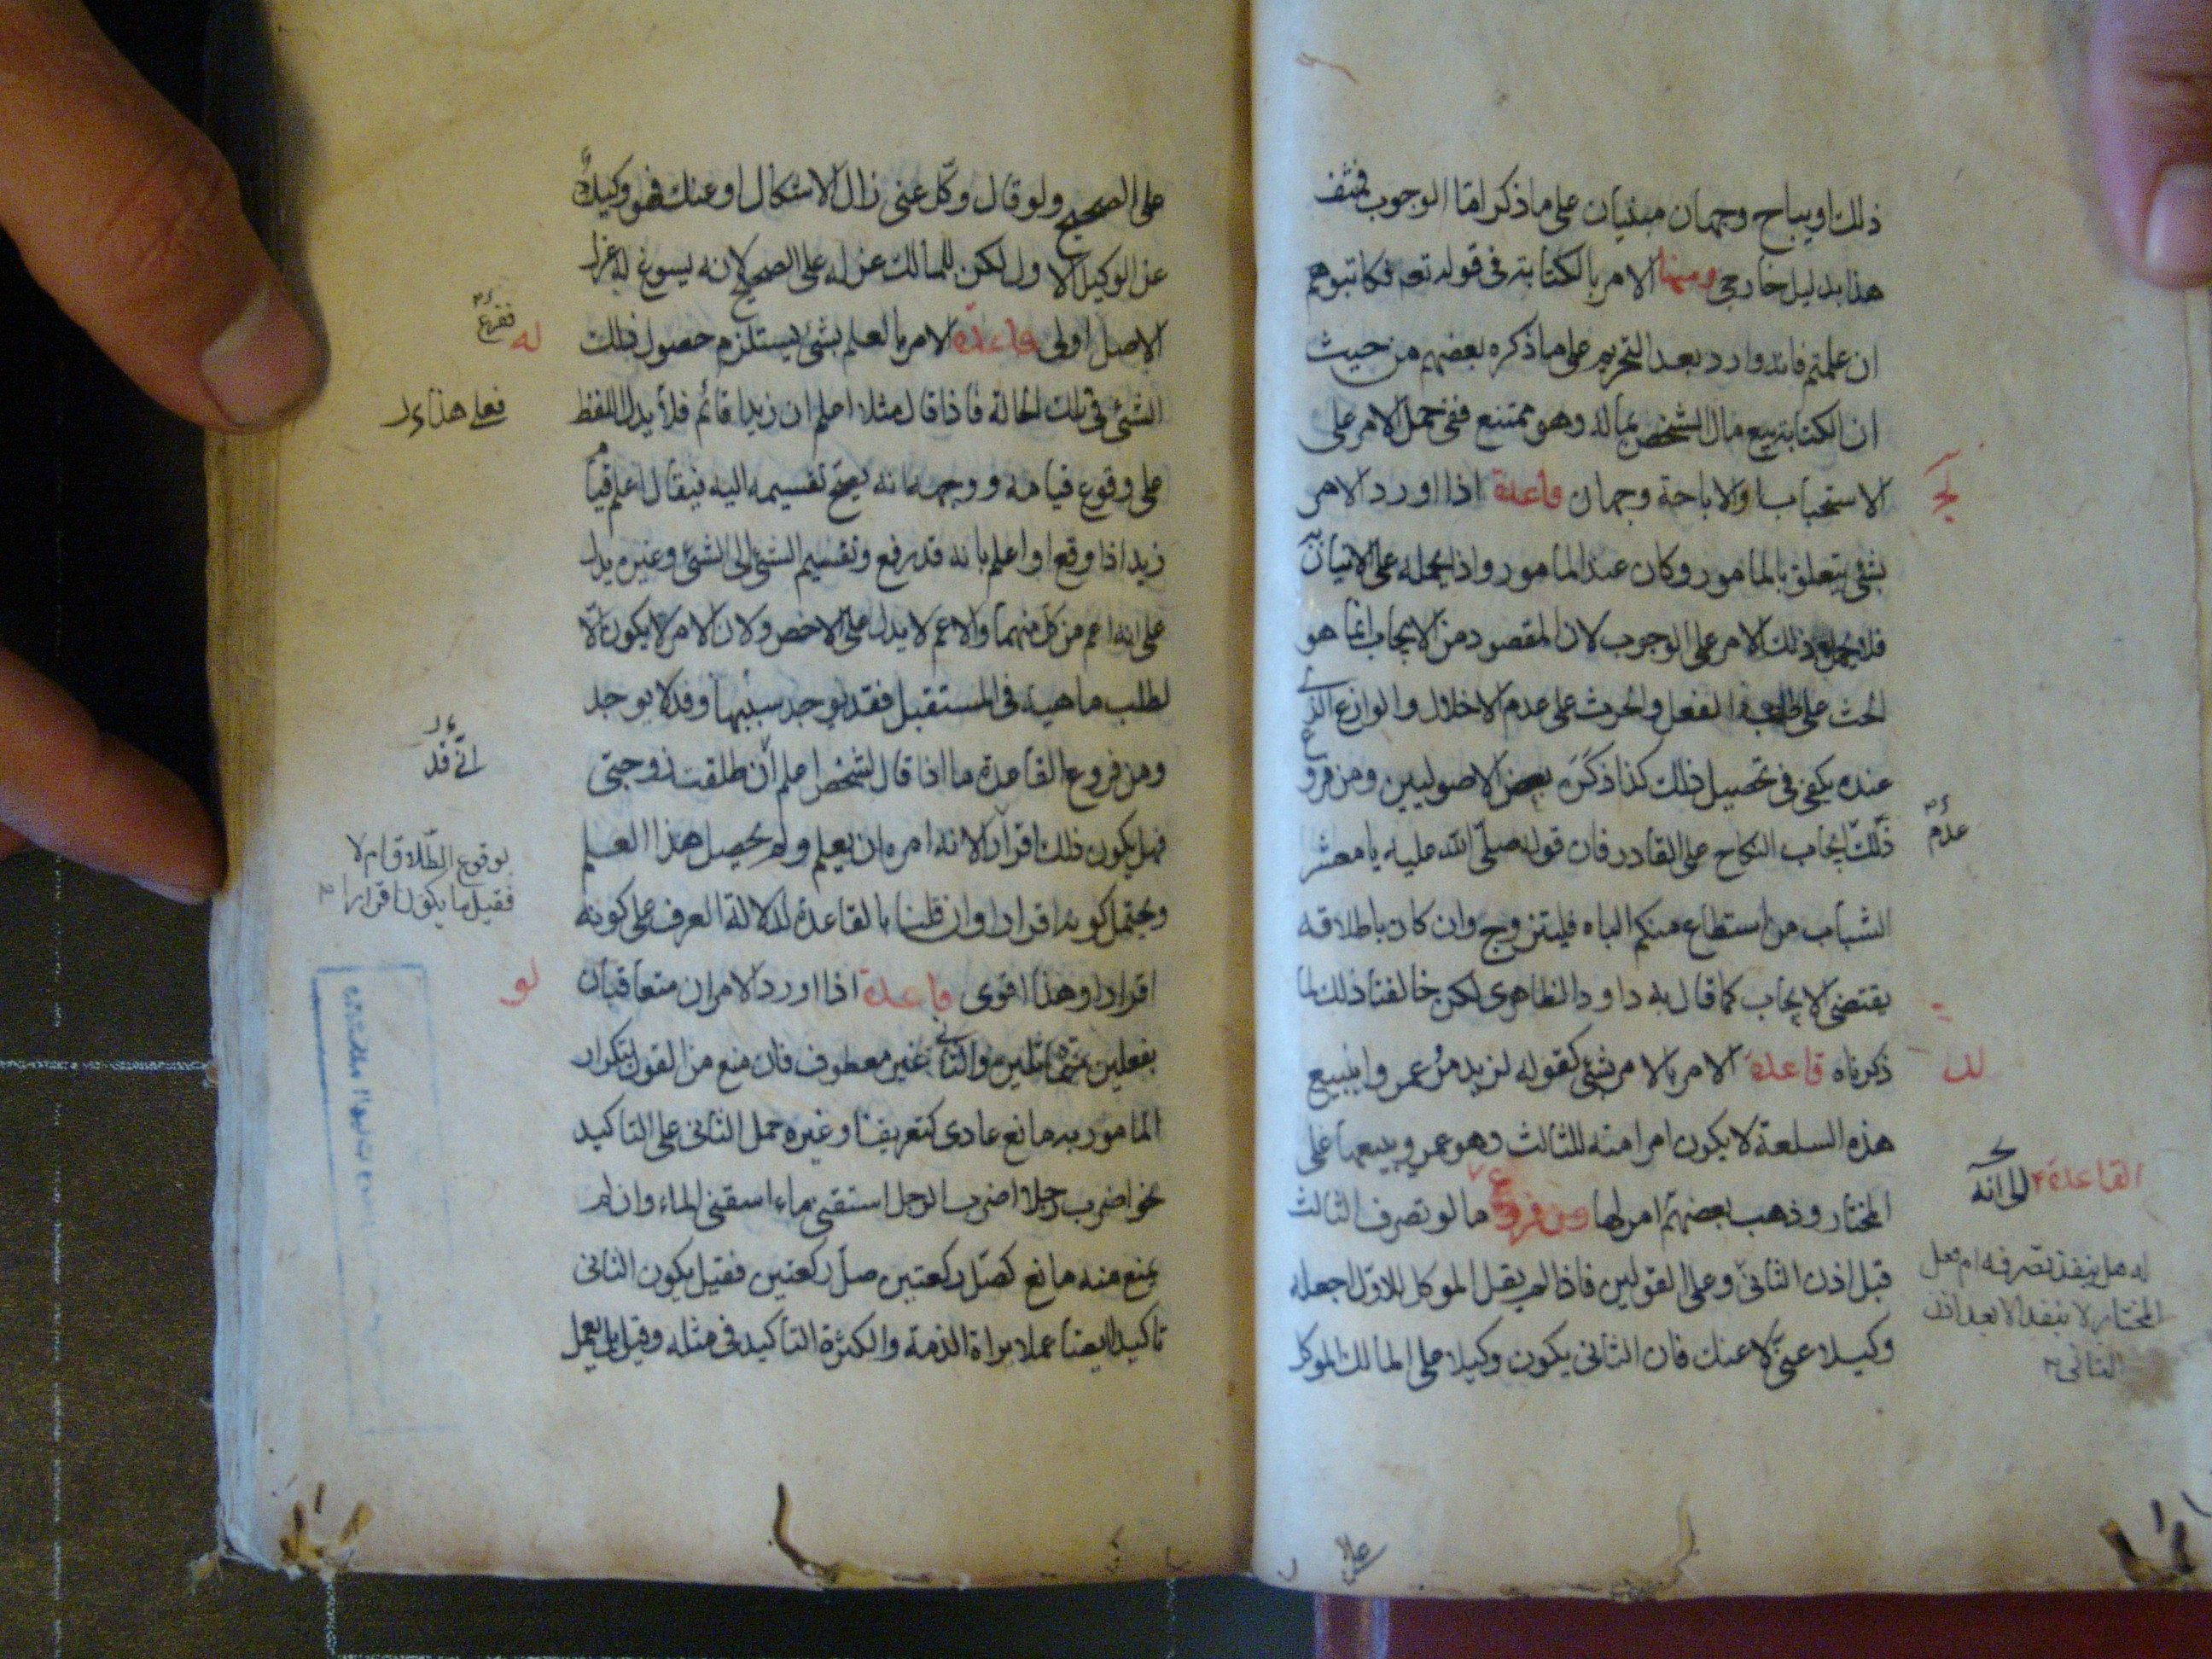 ذلك او يباح وجهان مبنيان على ما ذكر اما الوجوب فمنتف
هذا بدليل خارجي ومنها الامر بالكتابة في قوله تعم فكاتبوهم
ان علمتم فانه وارد بعد التحريم على ما ذكره بعضهم من حيث
ان الكتابة بيع مال الشخص بماله وهو ممتنع ففي حمل الامر على
الاستحباب او الاباحة وجهان قاعدة اذا اورد الامر
بشئ يتعلق بالمامور وكان عند المامور وازع يحمله على الاتيان به
فلا يحمل ذلك الامر على الوجوب لان المقصود من الايجاب انما هو
الحث على طلب الفعل والحرث على عدم الاخلال والوازع الذي
عنده يكفي في تحصيل ذلك كذا ذكره بعض الاصوليين ومن فروع
ذلك ايجاب النكاح على القادر فان قوله صلى الله عليه يا معشر
عدم
الشباب من استطاع منكم الباه فليتزوج وان كان باطلاقه
يقتضى الايجاب كما قال به داود الظاهرى لكن خالفنا ذلك لما
ذكرناه قاعدة الامر بالامر بشئ كقوله لزيد مر عمروا يبيع
لد
هذه السلعة لا يكون امرا منه للثالث وهو عمرو ببيعها على
المختار وذهب بعضهم امر لها ومن فروع ما لو تصرف الثالث
القاعدة
الى انه
قبل اذن الثاني وعلى القولين فاذا لم يقل الموكل للاول اجعله
له هل ينفذ تصرفه ام لا فعلى
المختار لا ينفذ الا بعد اذن
الثانى
وكيلا عنى لا عنك فان الثانى يكون وكيلا على المالك الموكل
على الصحيح ولو قال وكل عنى زال الاشكال او عنك فهو وكيل
عن الوكيل الاول لكن للمالك عزله على الصحيح لانه يسوغ له عزل
الاصل اولى قاعدة الامر بالعلم بشئ يستلزم حصول ذلك
ففرع
له
الشئ في تلك الحالة فاذا قال مثلا اعلم ان زيدا قائم فلا يدل اللفظ
فعلى هذا
على وقوع قيامه ووجهه انه يصح تقسيمه اليه فيقال اعلم قيام
زيد اذا وقع او اعلم بانه قد وقع وتقسيم الشئ الى الشئ وغيره يدل
على انه اعم من كل منهما والاعم لا يدل على الاخص ولان الامر لا يكون الا
لطلب ماهية في المستقبل فقد يوجد سببها وقد لا يوجد
ومن فروع القاعدة ما اذا قال لشخص اعلم ان طلقت زوجتى
انى قد
فهل يكون ذلك اقرارا لانه امره ان يعلم ولم يحصل هذا العلم
بوقوع الطلاق ام لا
فقيل ما يكون اقرارا
ويحتمل كونه اقرارا وان قلنا بالقاعدة لدلالة العرف على كونه
اقرارا وهذا اقوى قاعدة اذا اورد الامران متعاقبان
لو
بفعلين متماثلين والثاني غير معطوف فان منع من القول بتكرار
المامور به مانع عادى كتعريف او غيره حمل الثانى على التاكيد
نحو اضرب رجلا اضرب الرجل استقنى ماء اسقنى الماء وان لم
يمنع منه مانع كصل ركعتين صل ركعتين فقيل يكون الثانى
تاكيدا ايضا عملا ببراة الذمة والكثرة التاكيد في مثله وقيل بل يعمل